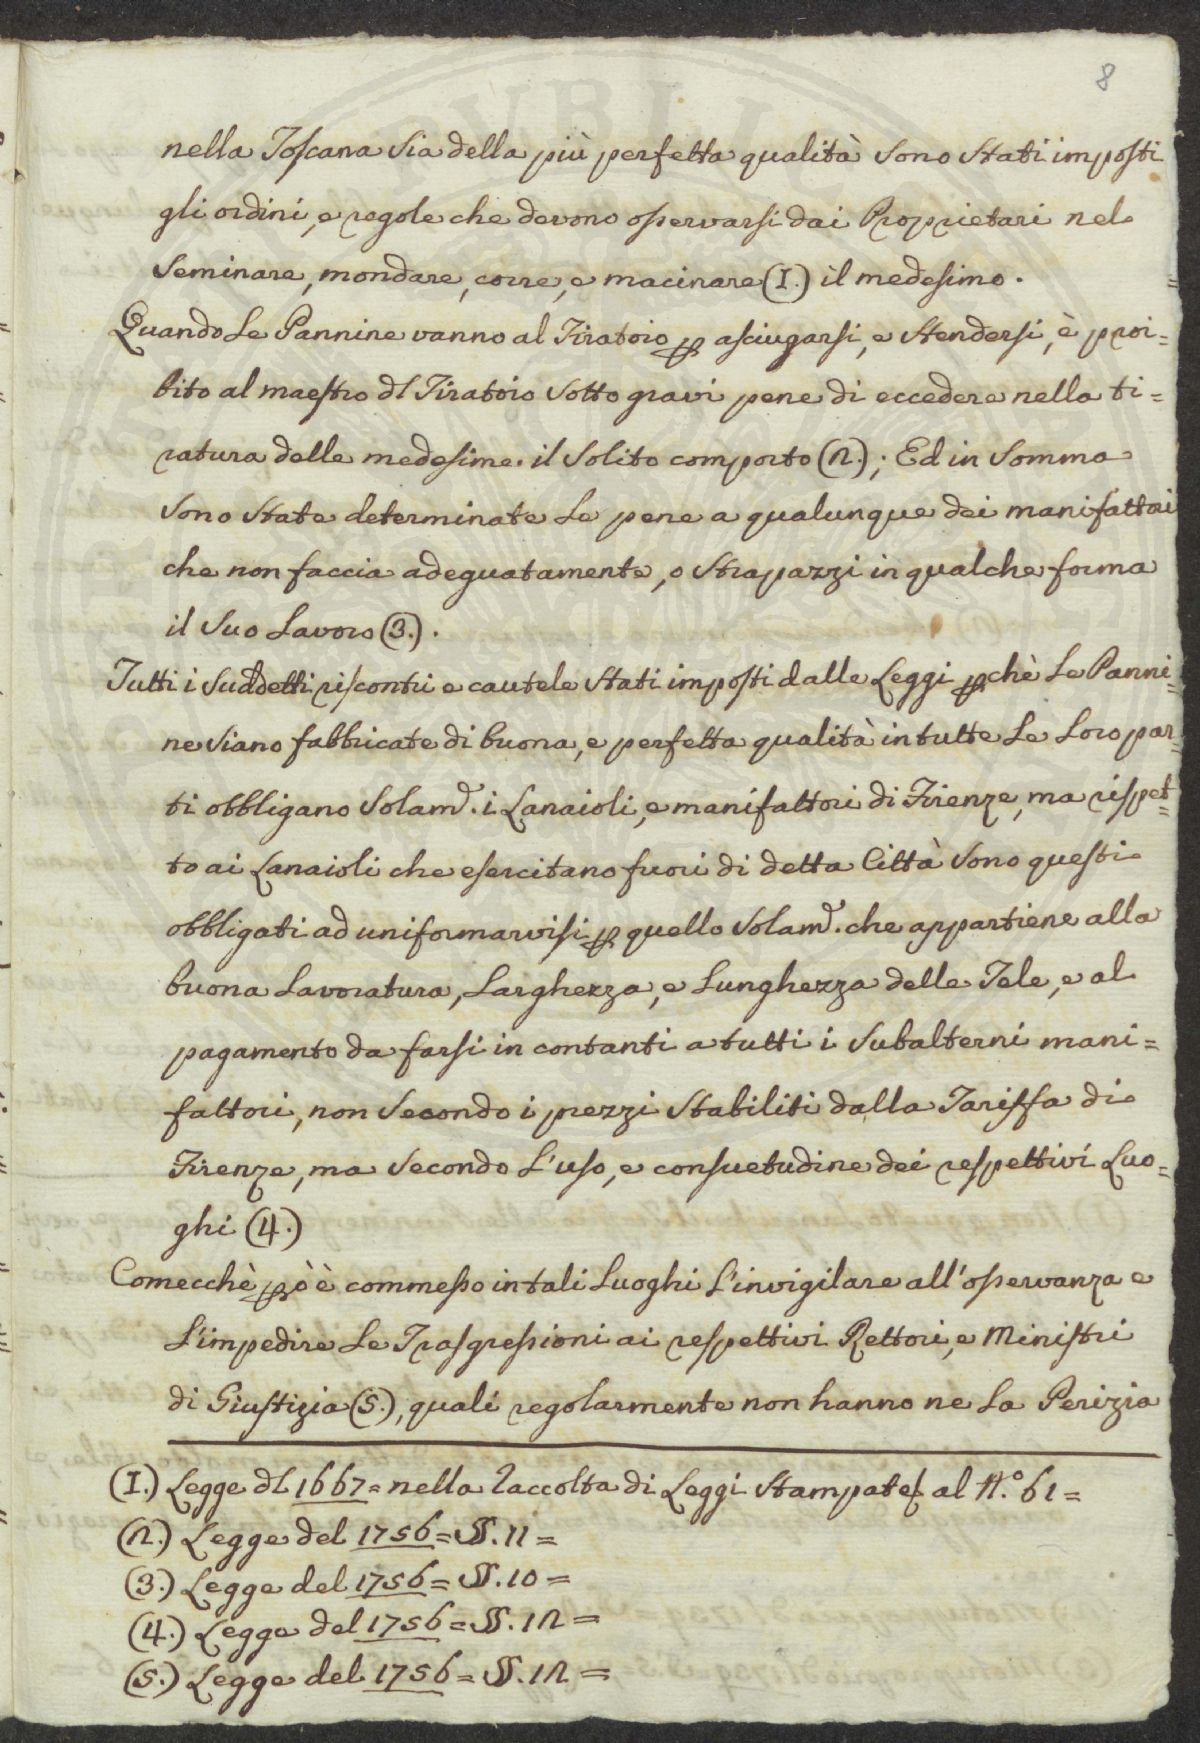 8
nella Toscana sia della più perfetta qualità sono stati imposti
gli ordini, e regole che devono osservarsi dai Proprietari nel
seminare, mondare, corre, e macinare (1.) il medesimo.
Quando le Pannine vanno al Tiratoio p asciugarsi, e stendersi, è proi=
bito al maestro dl Tiratoio sotto gravi pene di eccedere nella ti=
ratura delle medesime il solito comporto (2.); Ed in somma
sono state determinate le pene a qualunque dei manifattori
che non faccia adeguatamente, o strapazzi in qualche forma
il suo lavoro (3.).
Tutti i suddetti riscontri e cautele stati imposti dalle Leggi pchè le Panni=
ne siano fabbricate di buona, e perfetta qualità in tutte le loro par=
ti obbligano solam.e i Lanaioli, e manifattori di Firenze, ma rispet=
to ai Lanaioli che esercitano fuori di detta Città sono questi
obbligati ad uniformarvisi p quello solam.e che appartiene alla
buona lavoratura, larghezza, e lunghezza delle Tele, e al
pagamento da farsi in contanti a tutti i subalterni mani=
fattori, non secondo i prezzi stabiliti dalla Tariffa di
Firenze, ma secondo l'uso, e consuetudine dei respettivi luo=
ghi (4.)
Comecchè pò è commesso in tali luoghi l'invigilare all'osservanza e
l'impedire le Trasgressioni ai respettivi Rettori, e Ministri
di Giustizia (5.), quali regolarmente non hanno ne la Perizia
(1.) Legge dl 1667 = nella Raccolta di Leggi stampate al N.° 61 =
(2.) Legge del 1756 = §§. 11 =
(3.) Legge del 1756 = §§. 10 =
(4.) Legge del 1756 = §§. 12 =
(5.) Legge del 1756 = §§. 12 =